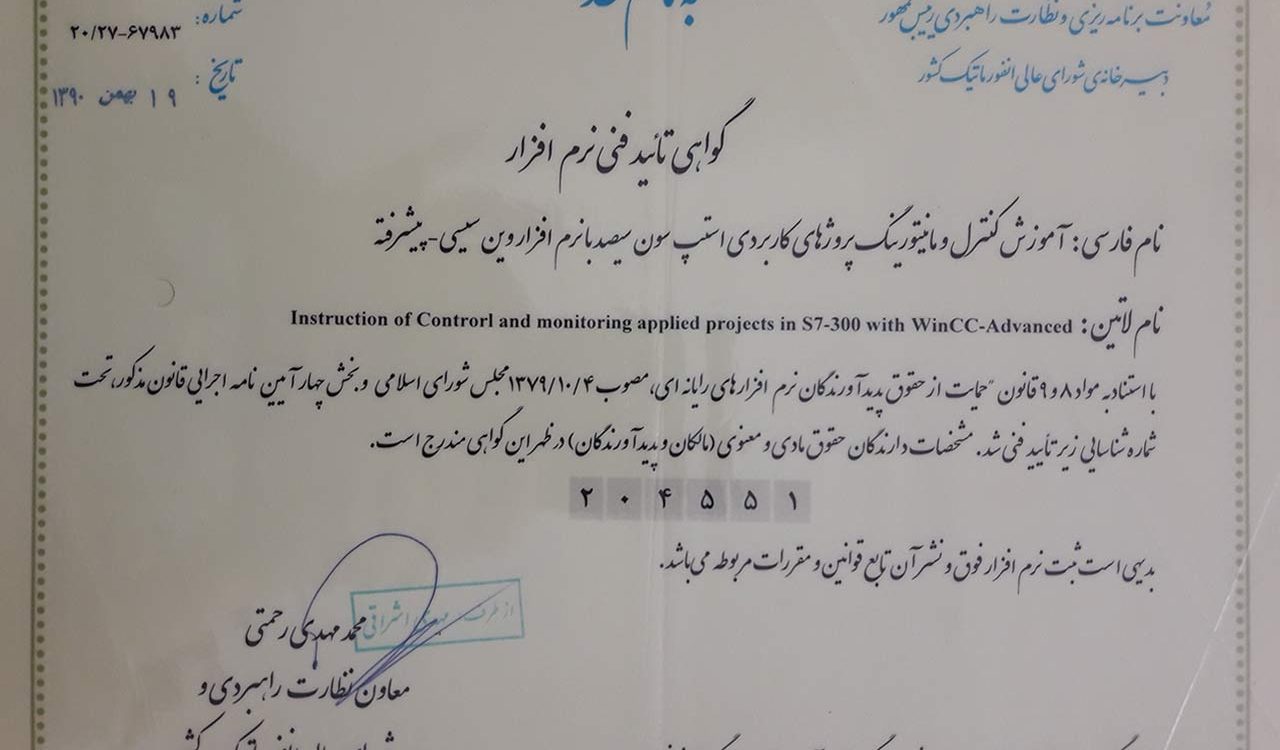 معاونت برنامه ریزی و نظارت راهبردی رییس جمهور
دبیرخانه‌ی شورای عالی انفورماتیک کشور
شماره: ۲۰/۲۷-۶۷۹۸۳
تاریخ: ۱۹ بهمن ۱۳۹۰
گواهی تائید فنی نرم افزار
نام فارسی: آموزش کنترل و مانیتورینگ پروژهای کاربردی استپ سون سیصد با نرم افزار وین سیسی-پیشرفته
نام لاتین: Instruction of Controrl and monitoring applied projects in S7-300 with WinCC-Advanced
با استناد به مواد ۸ و ۹ قانون "حمایت از حقوق پدیدآورندگان نرم افزارهای رایانه ای، مصوب ۱۳۷۹/۱۰/۴ مجلس شورای اسلامی و بخش چهار آیین نامه اجرایی قانون مذکور، تحت
شماره شناسایی زیر تأیید فنی شد. مشخصات دارندگان حقوق مادی و معنوی (مالکان و پدیدآورندگان) در ظهر این گواهی مندرج است.
۲ ۰ ۴ ۵ ۵ ۱
بدیهی است ثبت نرم افزار فوق و نشر آن تابع قوانین و مقررات مربوطه می باشد.
از طرف مهدی اشراقی
محمد مهدی رحمتی
معاون نظارت راهبردی و